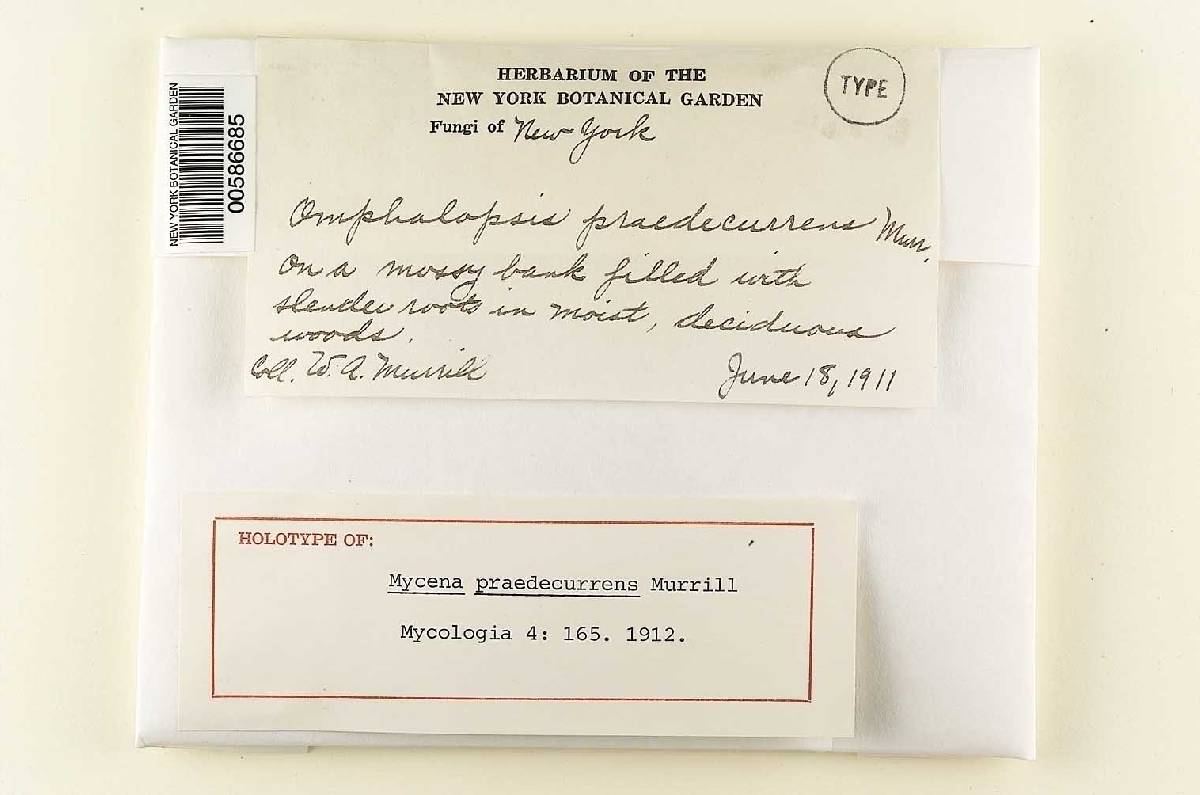 NEW YORK BOTANICAL GARDEN
00586685
HERBARIUM OF THE
NEW YORK BOTANICAL GARDEN
TYPE
Fungi of New York
Omphalopsis praedecurrens Murr.
On a mossy bank filled with
slender roots in moist, deciduous
woods.
Coll. W. A. Murrill
June 18, 1911
HOLOTYPE OF:
Mycena praedecurrens Murrill
Mycologia 4: 165. 1912.